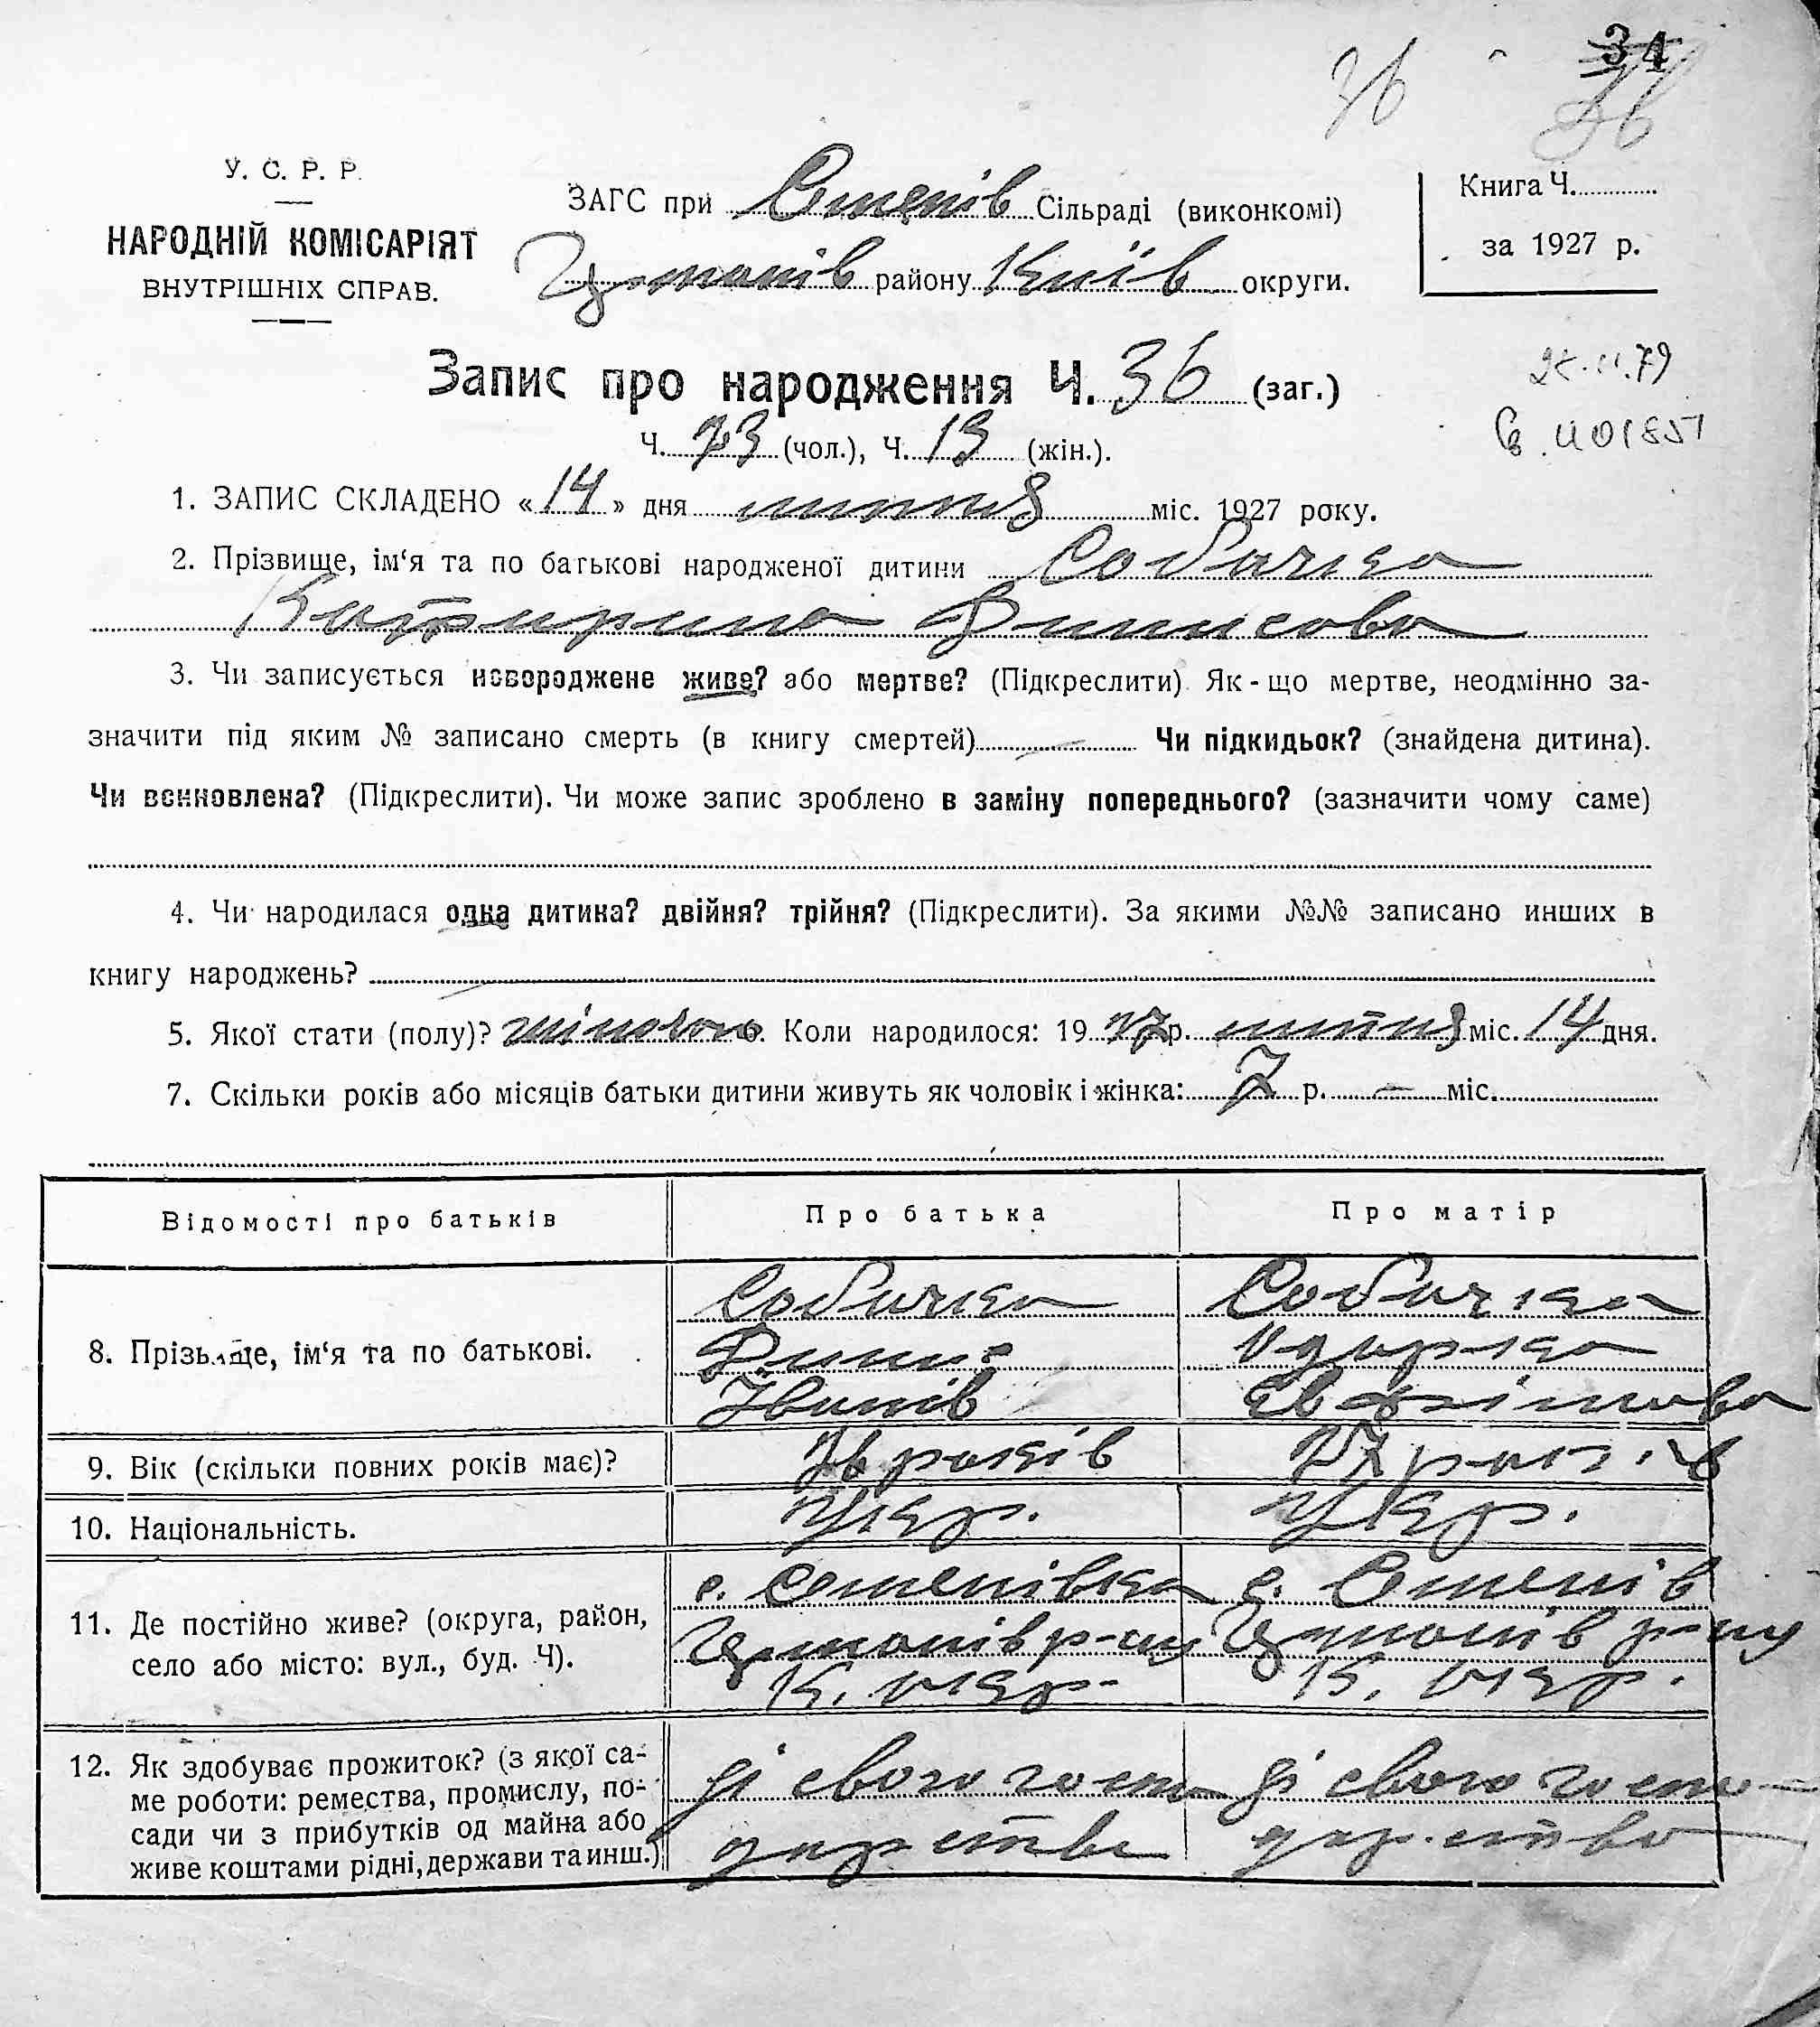 34
36
36
У. С. Р. Р.
НАРОДНІЙ КОМІСАРІЯТ
ВНУТРІШНІХ СПРАВ.
ЗАГС при Степів Сільраді (виконкомі)
району Київ округи.
Книга Ч.
за 1927 р.
Запис про народження Ч. 36 (заг.)
Ч. 23 (чол.), Ч. 13 (жін.).
1. ЗАПИС СКЛАДЕНО «14» дня липня міс. 1927 року.
2. Прізвище, ім‘я та по батькові народженої дитини Собачка
Катирина Динисова
3. Чи записується новороджене живе? або мертве? (Підкреслити). Як-що мертве, неодмінно за-
значити під яким № записано смерть (в книгу смертей) — Чи підкидьок? (знайдена дитина).
Чи всиновлена? (Підкреслити). Чи може запис зроблено в заміну попереднього? (зазначити чому саме)
4. Чи народилася одна дитина? двійня? трійня? (Підкреслити). За якими №№ записано инших в
книгу народжень? —
5. Якої стати (полу)? жіночого 6. Коли народилося: 19 27 р. липня міс. 14 дня.
7. Скільки років або місяців батьки дитини живуть як чоловік і жінка: 7 р. — міс.
Відомості про батьків Про батька Про матір
8. Прізвище, ім‘я та по батькові.
Собачка Собачка
Динис Одарка
Іванів Євфімова
9. Вік (скільки повних років має)? 26 років 27 років
10. Національність. Укр. Укр.
11. Де постійно живе? (округа, район,
село або місто: вул., буд. Ч).
с. с. Степів
р-ну р-ну
К. окр. К. окр.
12. Як здобуває прожиток? (з якої са-
ме роботи: ремества, промислу, по-
сади чи з прибутків од майна або
живе коштами рідні, держави та инш.)
зі свого госпо зі свого госпо-
дарства дарства